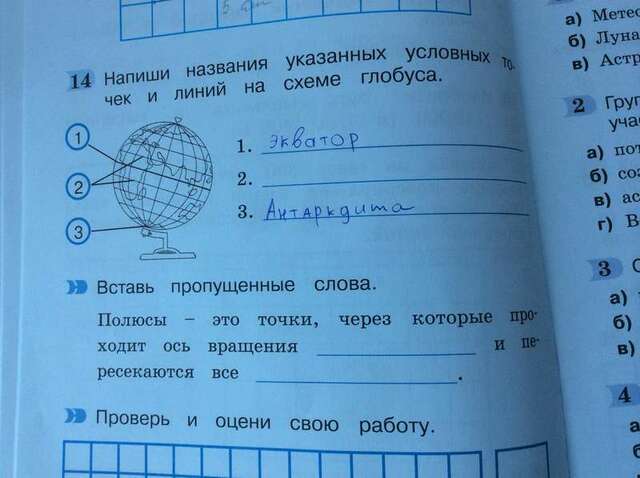 5 см
14 Напиши названия указанных условных то-
чек и линий на схеме глобуса.
1
2
3
1. экватор
2.
3. Антаркдита
Вставь пропущенные слова.
Полюсы – это точки, через которые про-
ходит ось вращения и пе-
ресекаются все .
Проверь и оцени свою работу.
а) Метео
б) Луна
в) Астр
2 Груп
учас
а) пот
б) соз
в) ас
г) В
3 С
а)
б)
в)
4
а
б
в